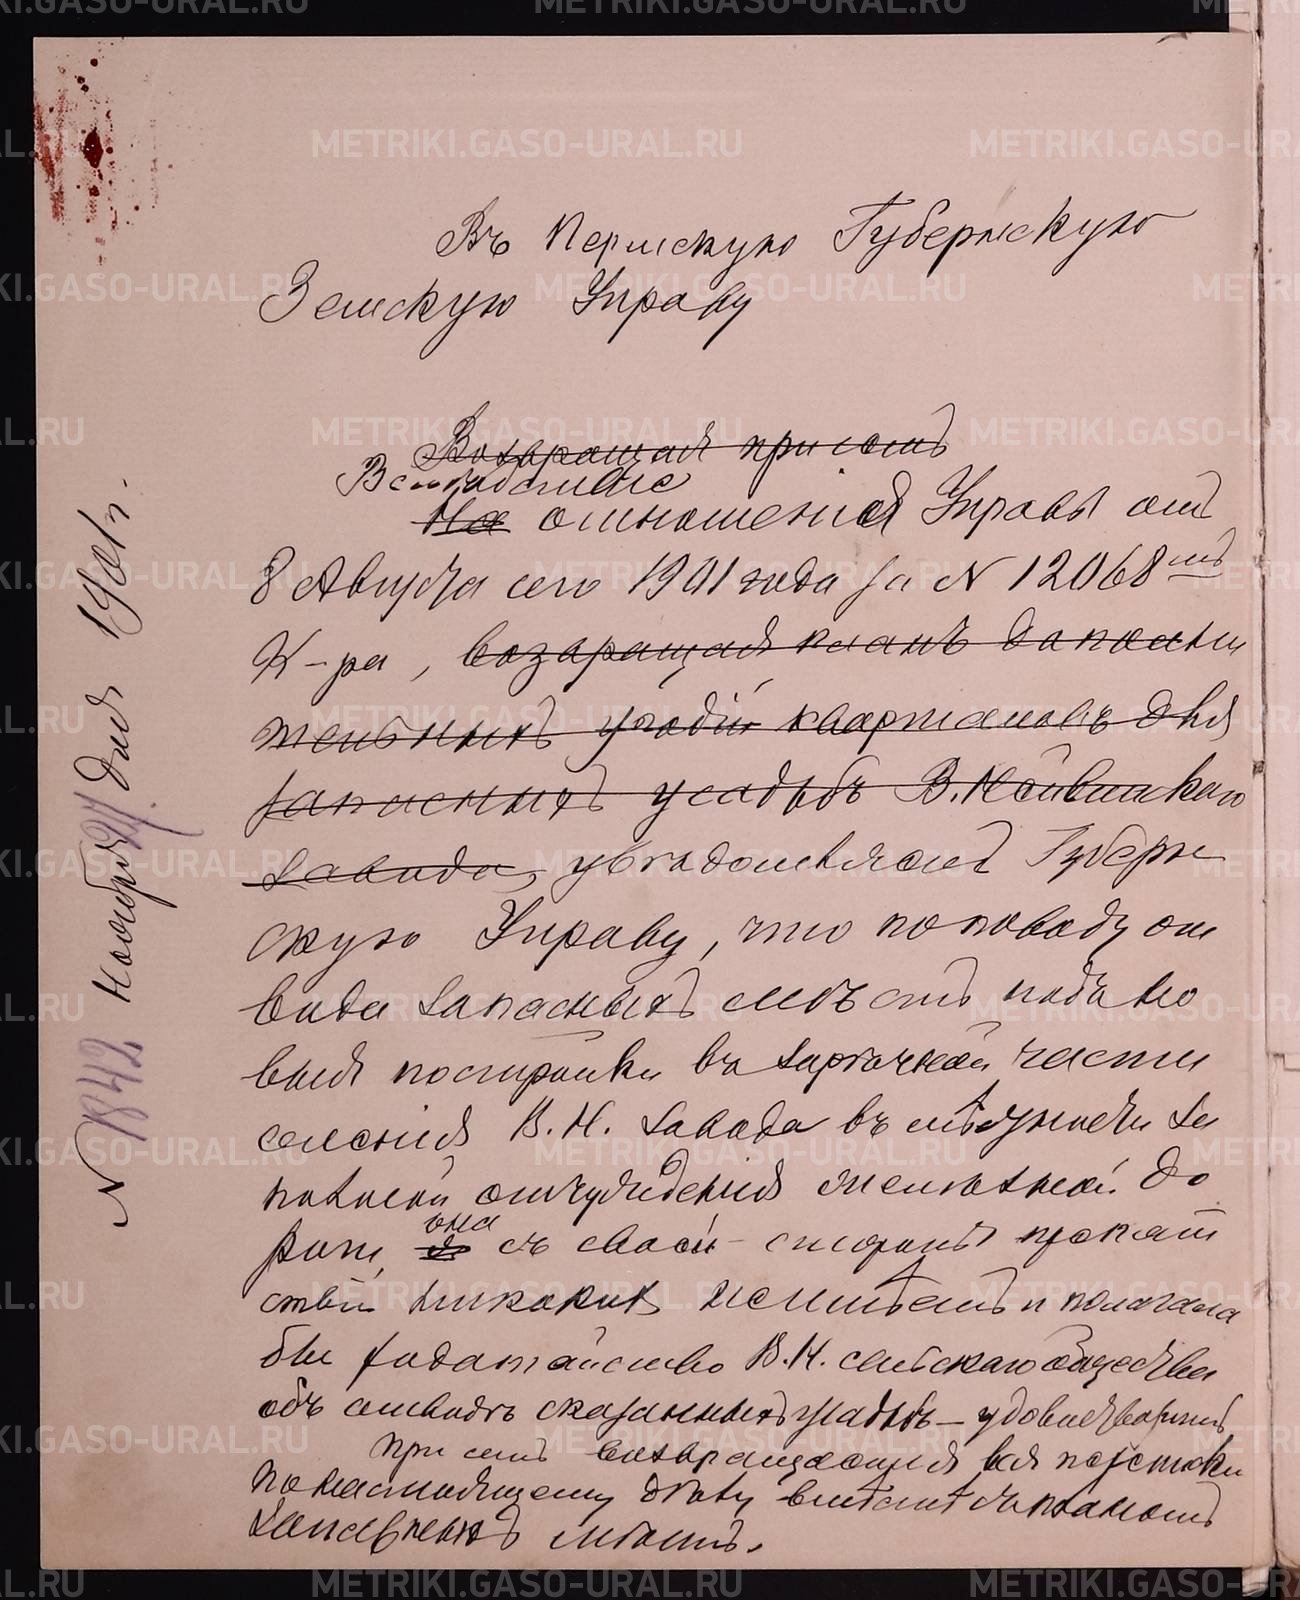 Въ Пермскую Губернскую
Земскую Управу
Возвращая при семъ
Вслѣдствіе
На отношенія Управы отъ
8 Августа сего 1901 года за N 12068мъ
К-ра, возвращая планъ дополни
тельныхъ угодій кварталовъ для
запасныхъ усадьбъ В.Нейвинскаго
Завода, увѣдомляетъ Губерн
скую Управу, что по поводу от
вода запасныхъ мѣстъ подъ но
выя постройки въ зарѣчной части
селенія В.Н. Завода въ мѣстности за
полосой отчужденія желѣзной до
роги, она съ своей стороны препят
ствій никакихъ не имѣетъ и полагала
бы ходатайство В.Н. сельскаго общества
объ отводѣ сказанныхъ усадьбъ - удовлетворить
При семъ возвращается вся переписка
по настоящему дѣлу вмѣстѣ съ планомъ
запасныхъ мѣстъ.
N 1842 Ноября 24 дня 1901 г.
METRIKI.GASO-URAL.RU